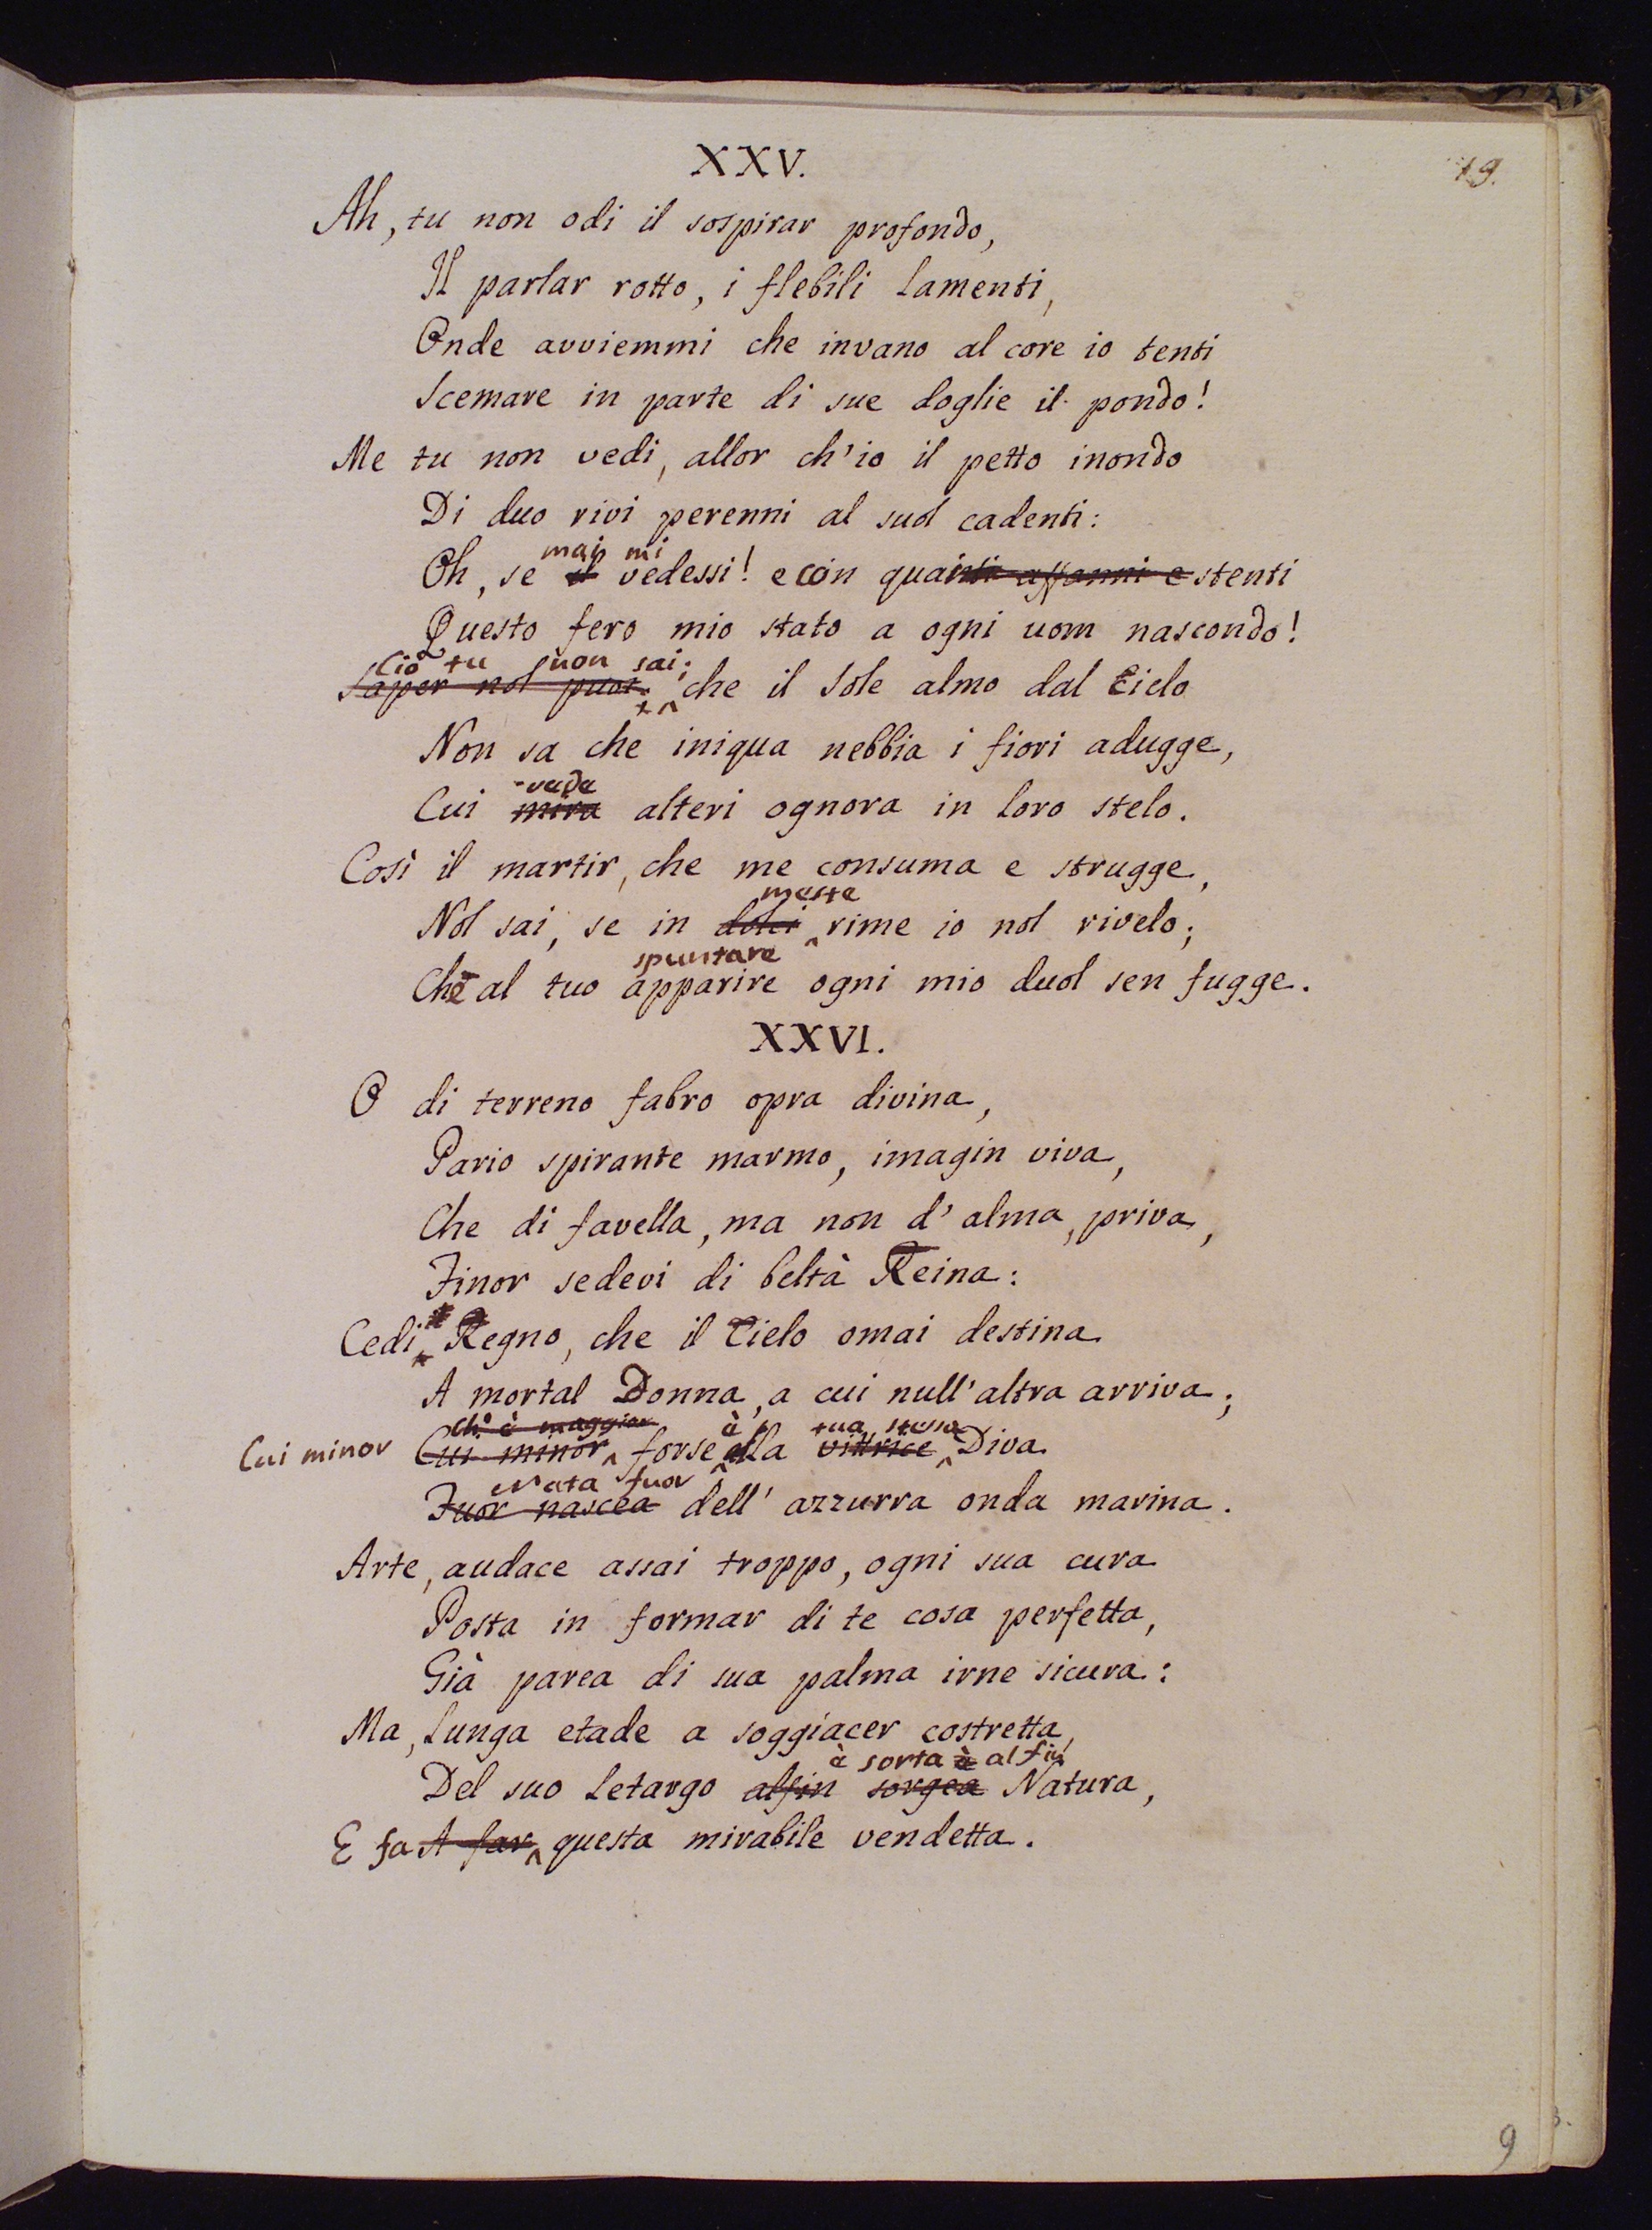 XXV.
19.
Ah, tu non odi il sospirar profondo,
Il parlar rotto, i flebili lamenti,
Onde avviemmi che invano al core io tenti
Scemare in parte di sue doglie il pondo!
Me tu non vedi, allor ch'io il petto inondo
Di duo rivi perenni al suol cadenti:
mai mi
Oh, se il vedessi! e con quanti affanni e stenti
Questo fero mio stato a ogni uom nascondo!
Ciò tu non sai;
Saper nol puoi: che il Sole almo dal Cielo
Non sa che iniqua nebbia i fiori adugge,
vede
Cui mira alteri ognora in loro stelo.
Così il martir, che me consuma e strugge,
meste
Nol sai, se in dolci rime io nol rivelo;
spuntare
Chè al tuo apparire ogni mio duol sen fugge.
XXVI.
O di terreno fabro opra divina,
Pario spirante marmo, imagin viva,
Che di favella, ma non d'alma, priva,
Finor sedevi di beltà Reina:
Cedi Regno, che il Cielo omai destina
A mortal Donna, a cui null'altra arriva;
Ch' è maggior è tua stessa
Cui minor Cui minor forse ella vittrice Diva
Nata fuor
Fuor nascea dell' azzurra onda marina.
Arte, audace assai troppo, ogni sua cura
Posta in formar di te cosa perfetta,
Già parea di sua palma irne sicura:
Ma, lunga etade a soggiacer costretta,
è sorta è al fin
Del suo letargo alfin sorgea Natura,
E fa A far questa mirabile vendetta.
9